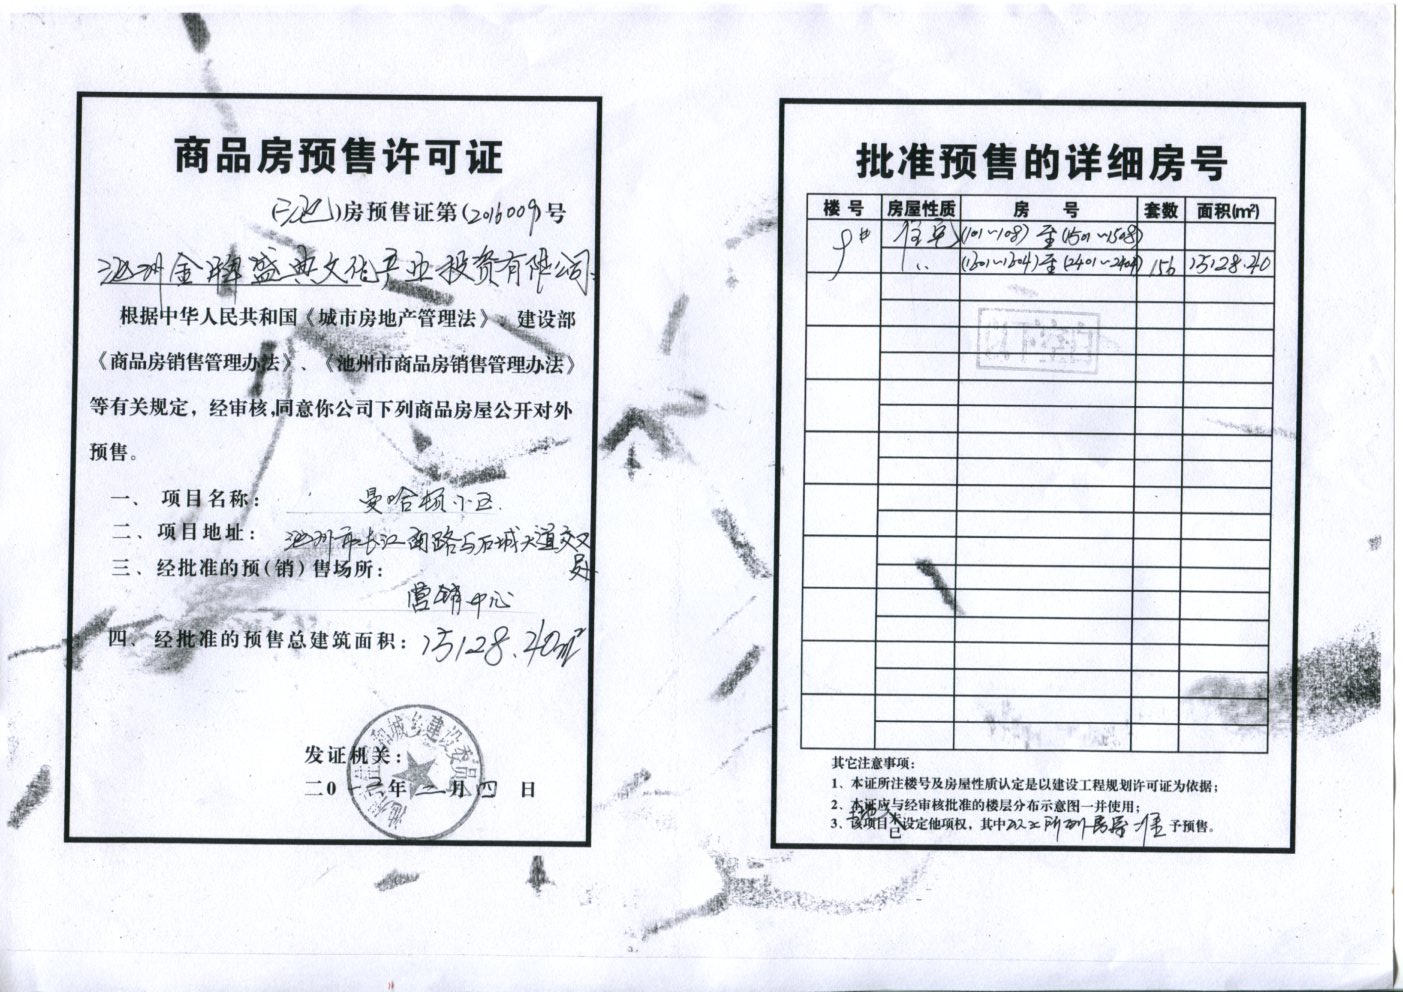 商品房预售许可证
(池)房预售证第(2016009)号
池州金瑞盛典文化产业投资有限公司:
根据中华人民共和国《城市房地产管理法》、建设部
《商品房销售管理办法》、《池州市商品房销售管理办法》
等有关规定,经审核,同意你公司下列商品房屋公开对外
预售。
一、 项目名称: 曼哈顿小区
二、项目地址: 池州市长江南路与石城大道交叉处
三、经批准的预(销)售场所:
营销中心
四、经批准的预售总建筑面积: 15128.40㎡
发证机关:
二0一六年二月四日
批准预售的详细房号
楼 号 房屋性质 房 号 套数 面积(m²)
9# 住宅 (101~108) 至 (1501~1508)
〃 (1301~1304) 至 (2401~2404) 156 15128.40
其它注意事项:
1、本证所注楼号及房屋性质认定是以建设工程规划许可证为依据;
2、本证应与经审核批准的楼层分布示意图一并使用;
3、该项目 未 已 设定他项权,其中以上所列房号准予预售。